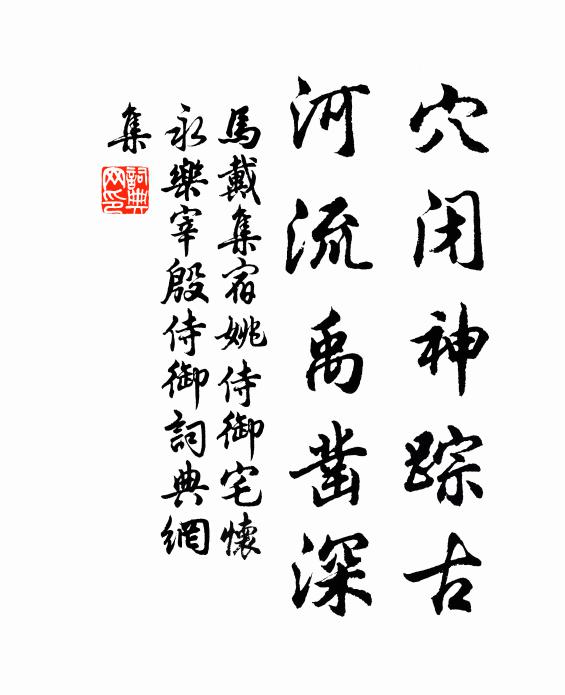 穴闭神踪古
河流禹凿深
馬戴集宿姚侍御宅懷
永樂宰殷侍御詞典網
集
詞典
网印